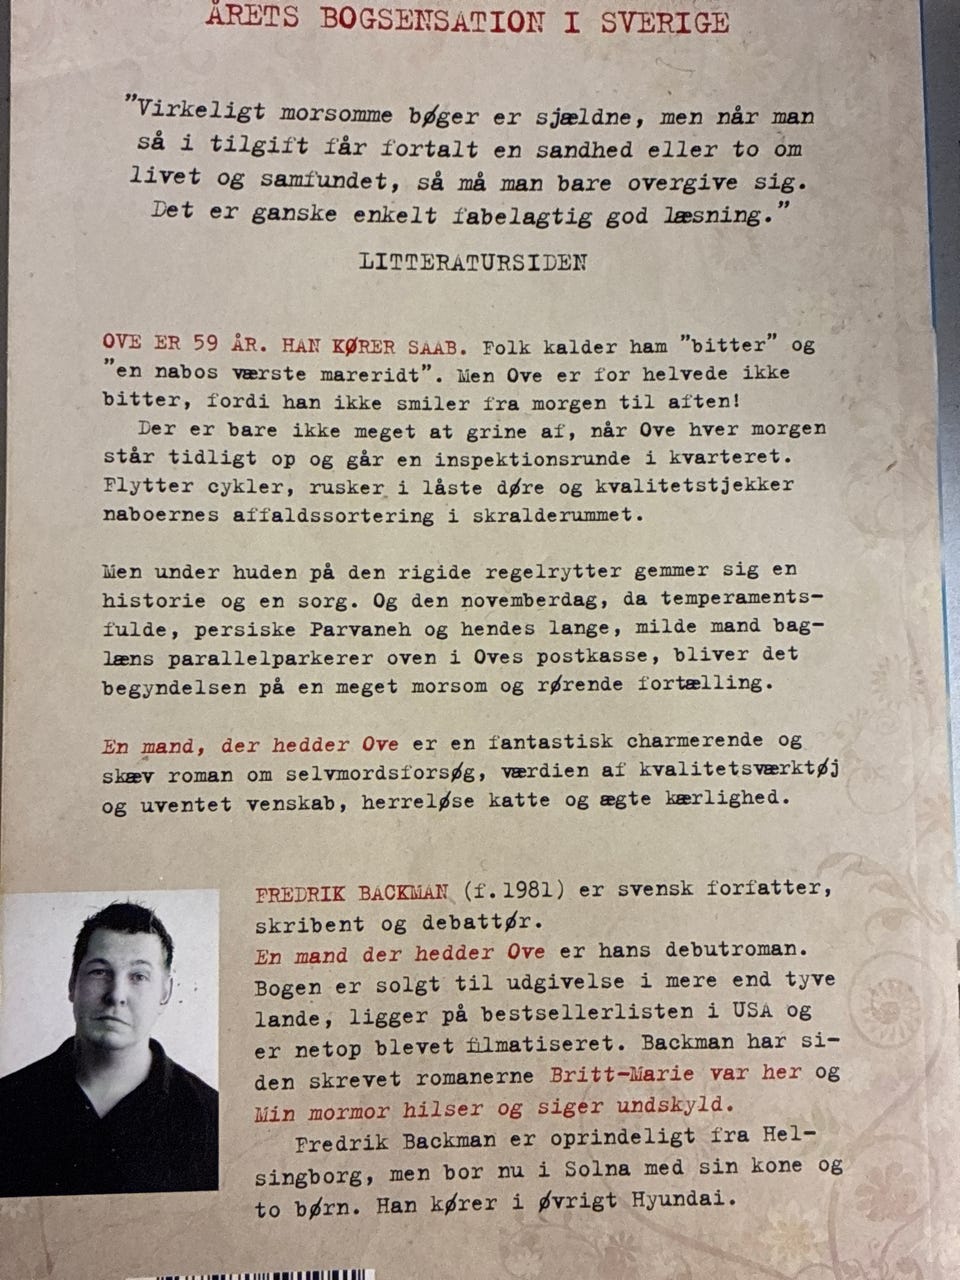 ÅRETS BOGSENSATION I SVERIGE
"Virkeligt morsomme bøger er sjældne, men når man
så i tilgift får fortalt en sandhed eller to om
livet og samfundet, så må man bare overgive sig.
Det er ganske enkelt fabelagtig god læsning."
LITTERATURSIDEN
OVE ER 59 ÅR. HAN KØRER SAAB. Folk kalder ham "bitter" og
"en nabos værste mareridt". Men Ove er for helvede ikke
bitter, fordi han ikke smiler fra morgen til aften!
Der er bare ikke meget at grine af, når Ove hver morgen
står tidligt op og går en inspektionsrunde i kvarteret.
Flytter cykler, rusker i låste døre og kvalitetstjekker
naboernes affaldssortering i skralderummet.
Men under huden på den rigide regelrytter gemmer sig en
historie og en sorg. Og den novemberdag, da temperaments-
fulde, persiske Parvaneh og hendes lange, milde mand bag-
læns parallelparkerer oven i Oves postkasse, bliver det
begyndelsen på en meget morsom og rørende fortælling.
En mand, der hedder Ove er en fantastisk charmerende og
skæv roman om selvmordsforsøg, værdien af kvalitetsværktøj
og uventet venskab, herreløse katte og ægte kærlighed.
FREDRIK BACKMAN (f.1981) er svensk forfatter,
skribent og debattør.
En mand der hedder Ove er hans debutroman.
Bogen er solgt til udgivelse i mere end tyve
lande, ligger på bestsellerlisten i USA og
er netop blevet filmatiseret. Backman har si-
den skrevet romanerne Britt-Marie var her og
Min mormor hilser og siger undskyld.
Fredrik Backman er oprindeligt fra Hel-
singborg, men bor nu i Solna med sin kone og
to børn. Han kører i øvrigt Hyundai.